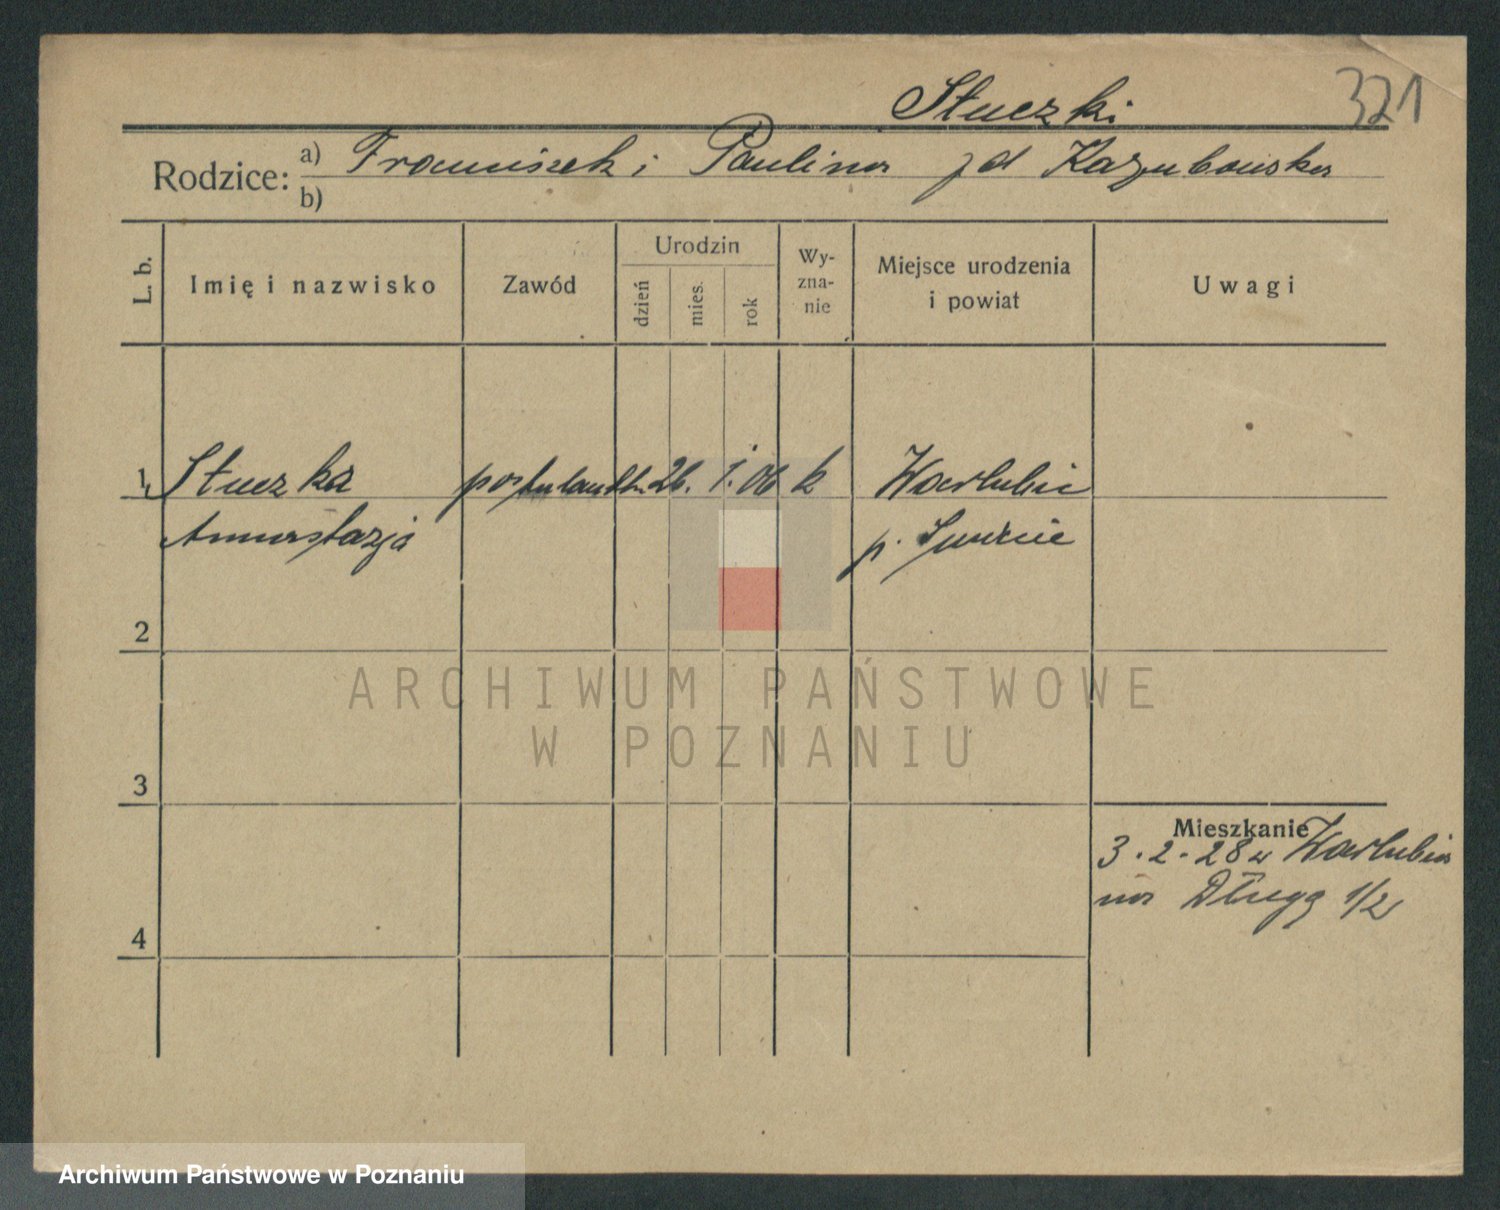 Słuczki 321
Rodzice: a) Franciszek i Paulina zd Kazubowska
b)
L. b. Imię i nazwisko Zawód Urodzin dzień mies. rok Wyznanie Miejsce urodzenia i powiat Uwagi
1 Słuczka postulantk. 26. 1. 06 k Warlubie
Anastazja p. Świecie
2
ARCHIWUM PAŃSTWOWE
W POZNANIU
3
Mieszkanie
3.2.28 w Warlubia
na Długą 1/2
4
Archiwum Państwowe w Poznaniu